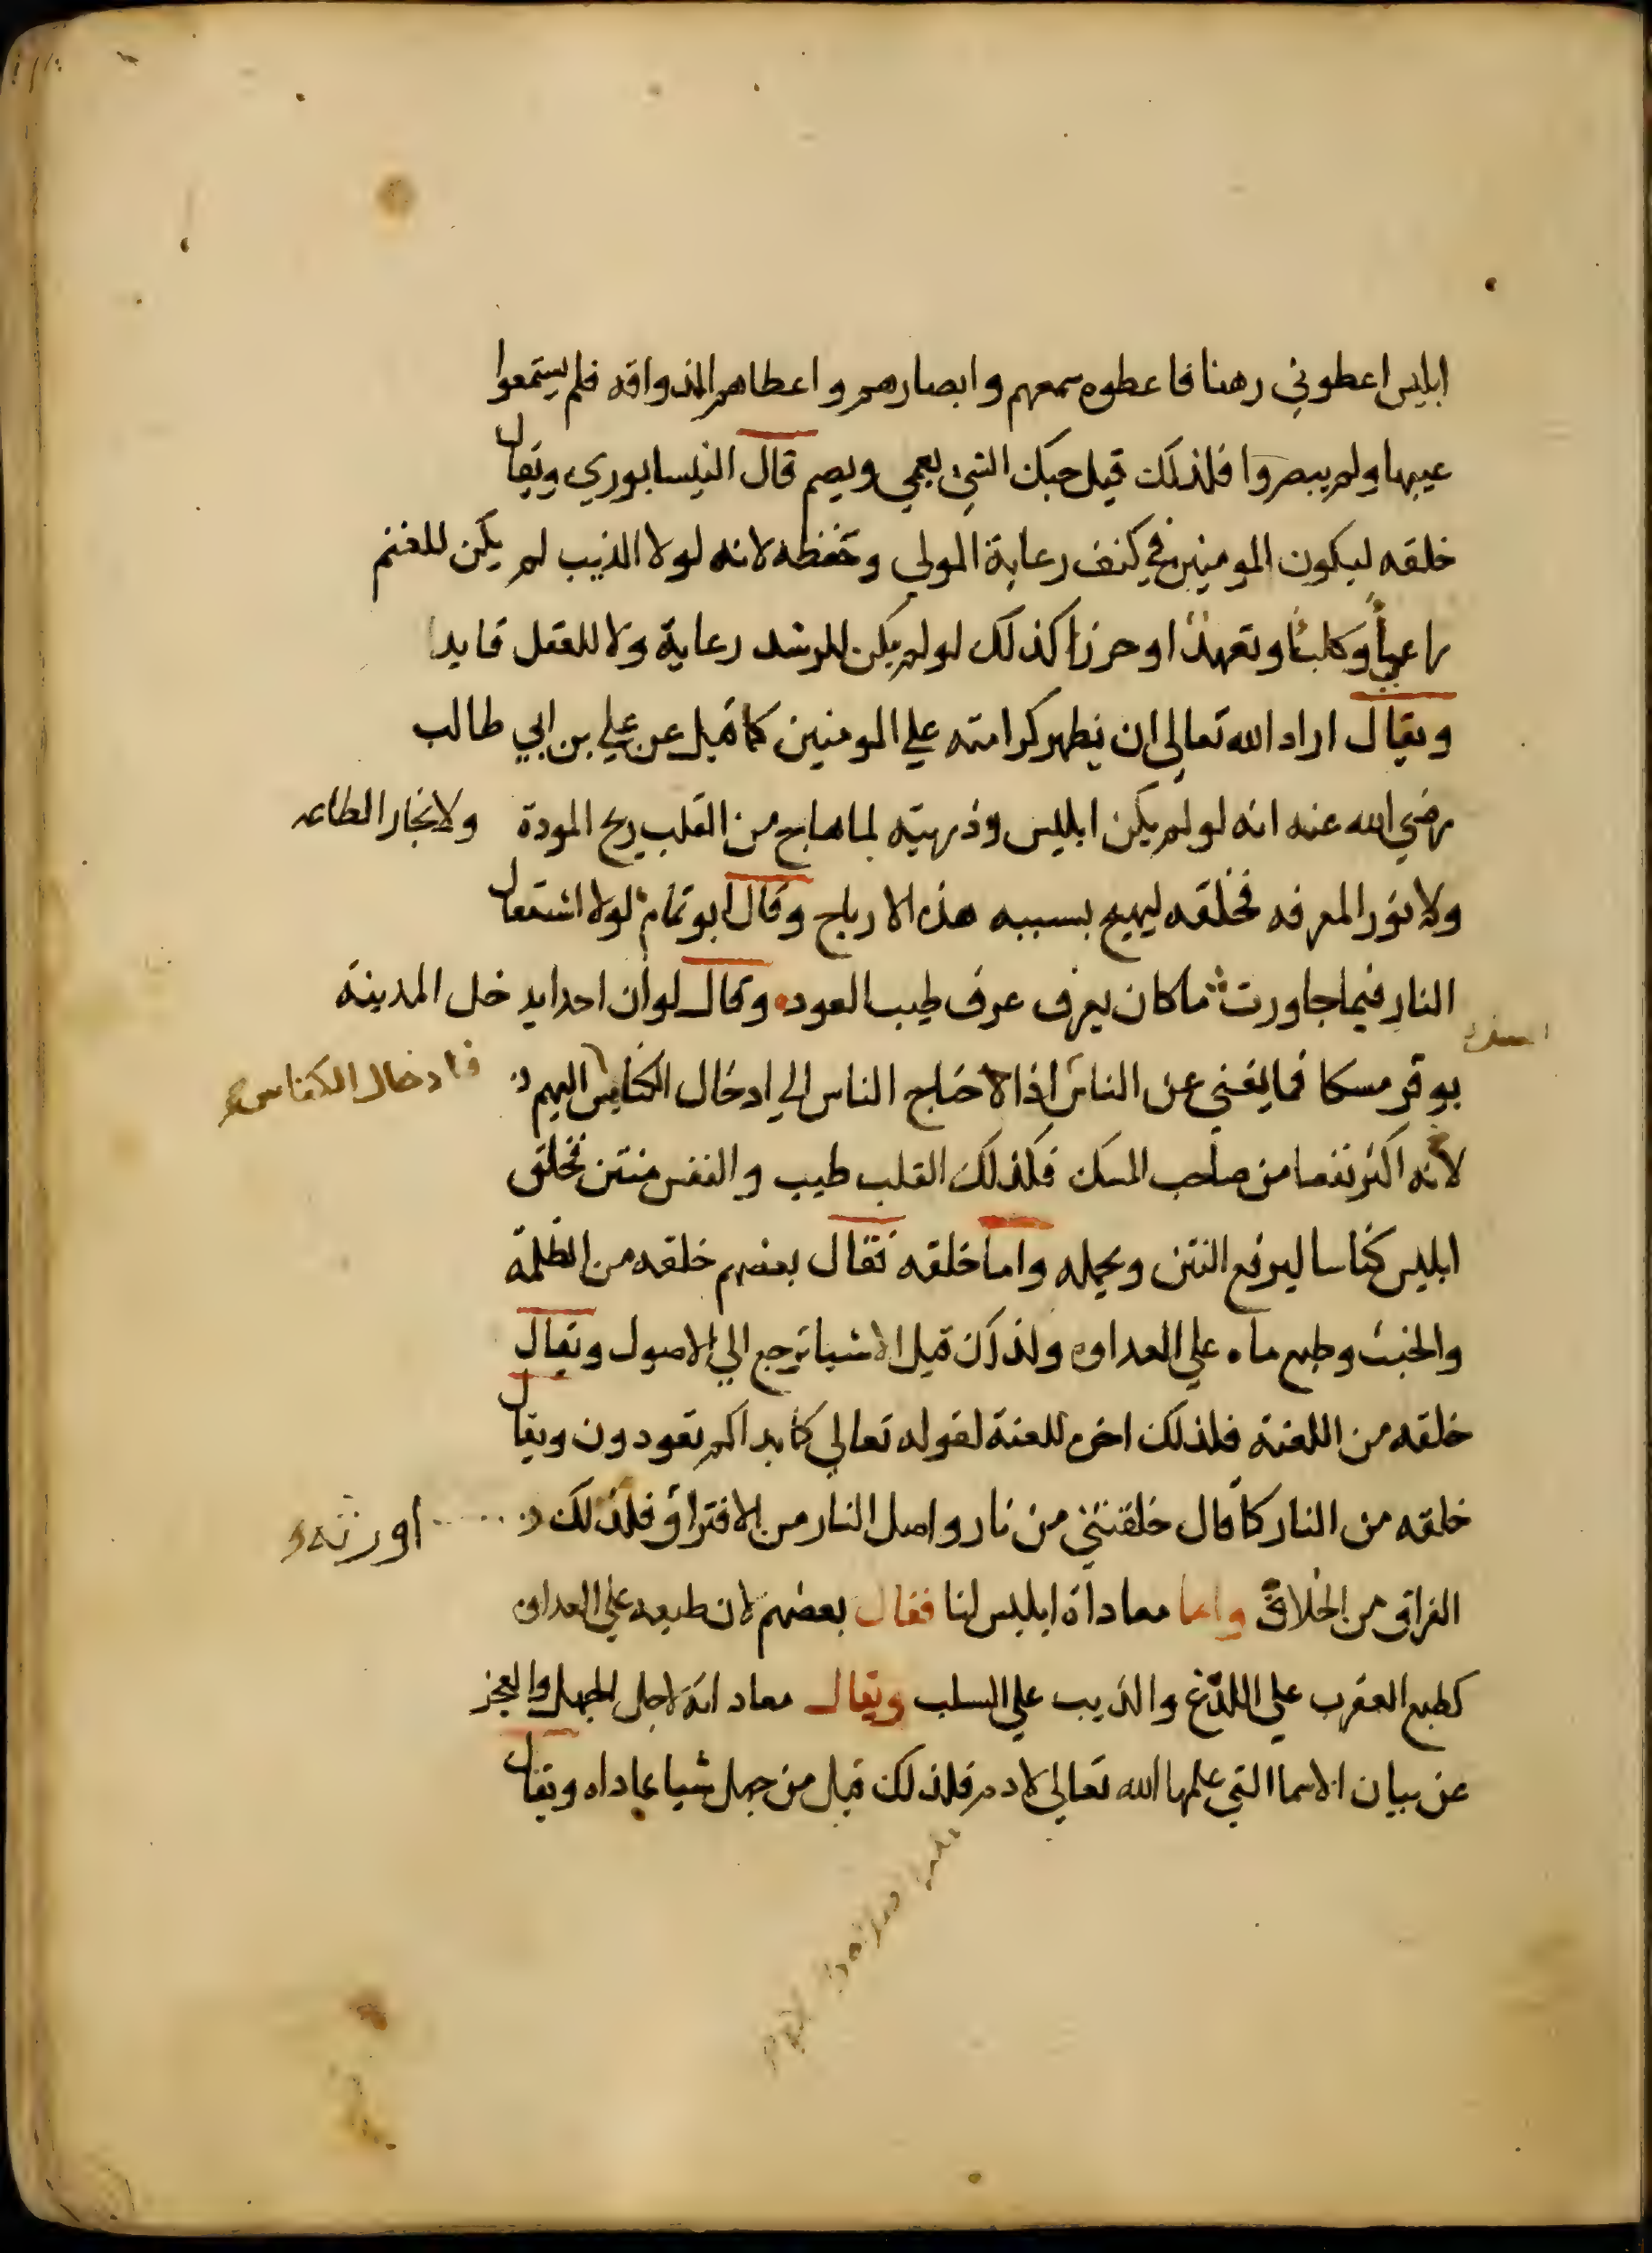 ابليس اعطوني رهنا فاعطوه سمعهم وابصارهم واعطاهم المذواقه فلم يستمعوا
عيبها ولم يبصروا فلذلك قيل حبك الشي يعمي ويصم قال النيسابوري ويقال
خلقه ليكون المومنين في كنف رعاية المولي وحفظه لانه لولا الذيب لم يكن للغنم
راعيا وكلبا وتعهدا وحرزا كذلك لو لم يكن للرشد رعاية ولا للعقل قايدا
ويقال اراد الله تعالي ان يظهر كرامته علي المومنين كما قيل عن علي بن ابي طالب
رضي الله عنه انه لو لم يكن ابليس وذريته لما هاج من القلب ريح المودة ولا بخار الطاعه
ولا نور المعرفه فخلقه ليهيج بسببه هذه الارياح وقال ابو تمام لولا اشتعال
النار فيما جاورت ما كان يعرف عرف طيب العود وقال لو ان احدا يدخل المدينة
بوقر مسكا فما يغني عن الناس اذا لاحتاج الناس الي ادخال الكناس اليهم
فادخال الكناس
لانه اكثر نفعا من صاحب المسك فكذلك القلب طيب والنفس منتن فخلق
ابليس كناسا ليرفع النتن ويحمله واما خلقه فقال بعضهم خلقه من الظلمة
والخبث وطبع ماه علي العداوه ولذلك قيل الاشيا ترجع الي الاصول ويقال
خلقه من اللعنة فلذلك اخره للعنة لقوله تعالي كما بداكم تعودون ويقال
خلقه من النار كما قال خلقتني من نار واصل النار من الافتراق فلذلك
اورثه
الفراق من الخلاق واما معاداة ابليس لنا فقال بعضهم لان طبعه علي العداوه
كطبع العقرب علي اللدغ والذيب علي السلب ويقال معاداته لاجل الجهل والعجز
عن بيان الاسما التي علمها الله تعالي لادم فلذلك قيل من جهل شيا عاداه ويقال